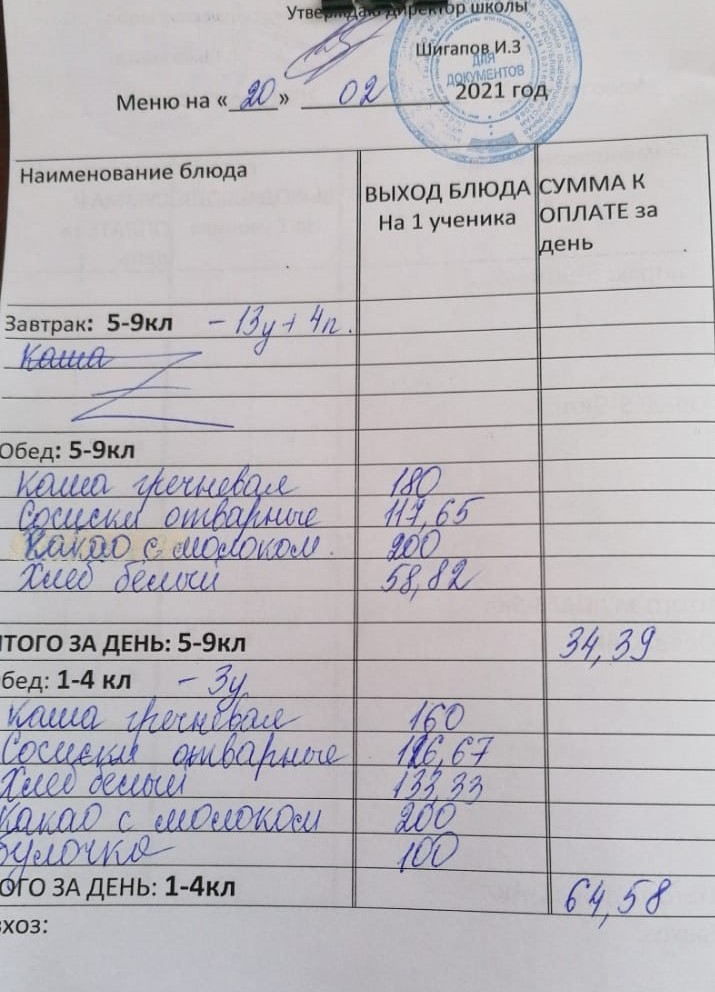 Утверждаю директор школы
Шигапов И.З
ДЛЯ
ДОКУМЕНТОВ
Меню на «20» 02 2021 год
Наименование блюда
ВЫХОД БЛЮДА
На 1 ученика
СУММА К
ОПЛАТЕ за
день
Завтрак: 5-9кл - 13у + 4п.
Каша
Обед: 5-9кл
Каша гречневая 180
Сосиски отварные 117,65
Какао с молоком. 200
Хлеб белый 58,82
ИТОГО ЗА ДЕНЬ: 5-9кл 34,39
бед: 1-4 кл - 3у
Каша гречневая 160
Сосиски отварные 126,67
Хлеб белый 133,33
Какао с молоком 200
булочка 100
ОГО ЗА ДЕНЬ: 1-4кл 64,58
вхоз: